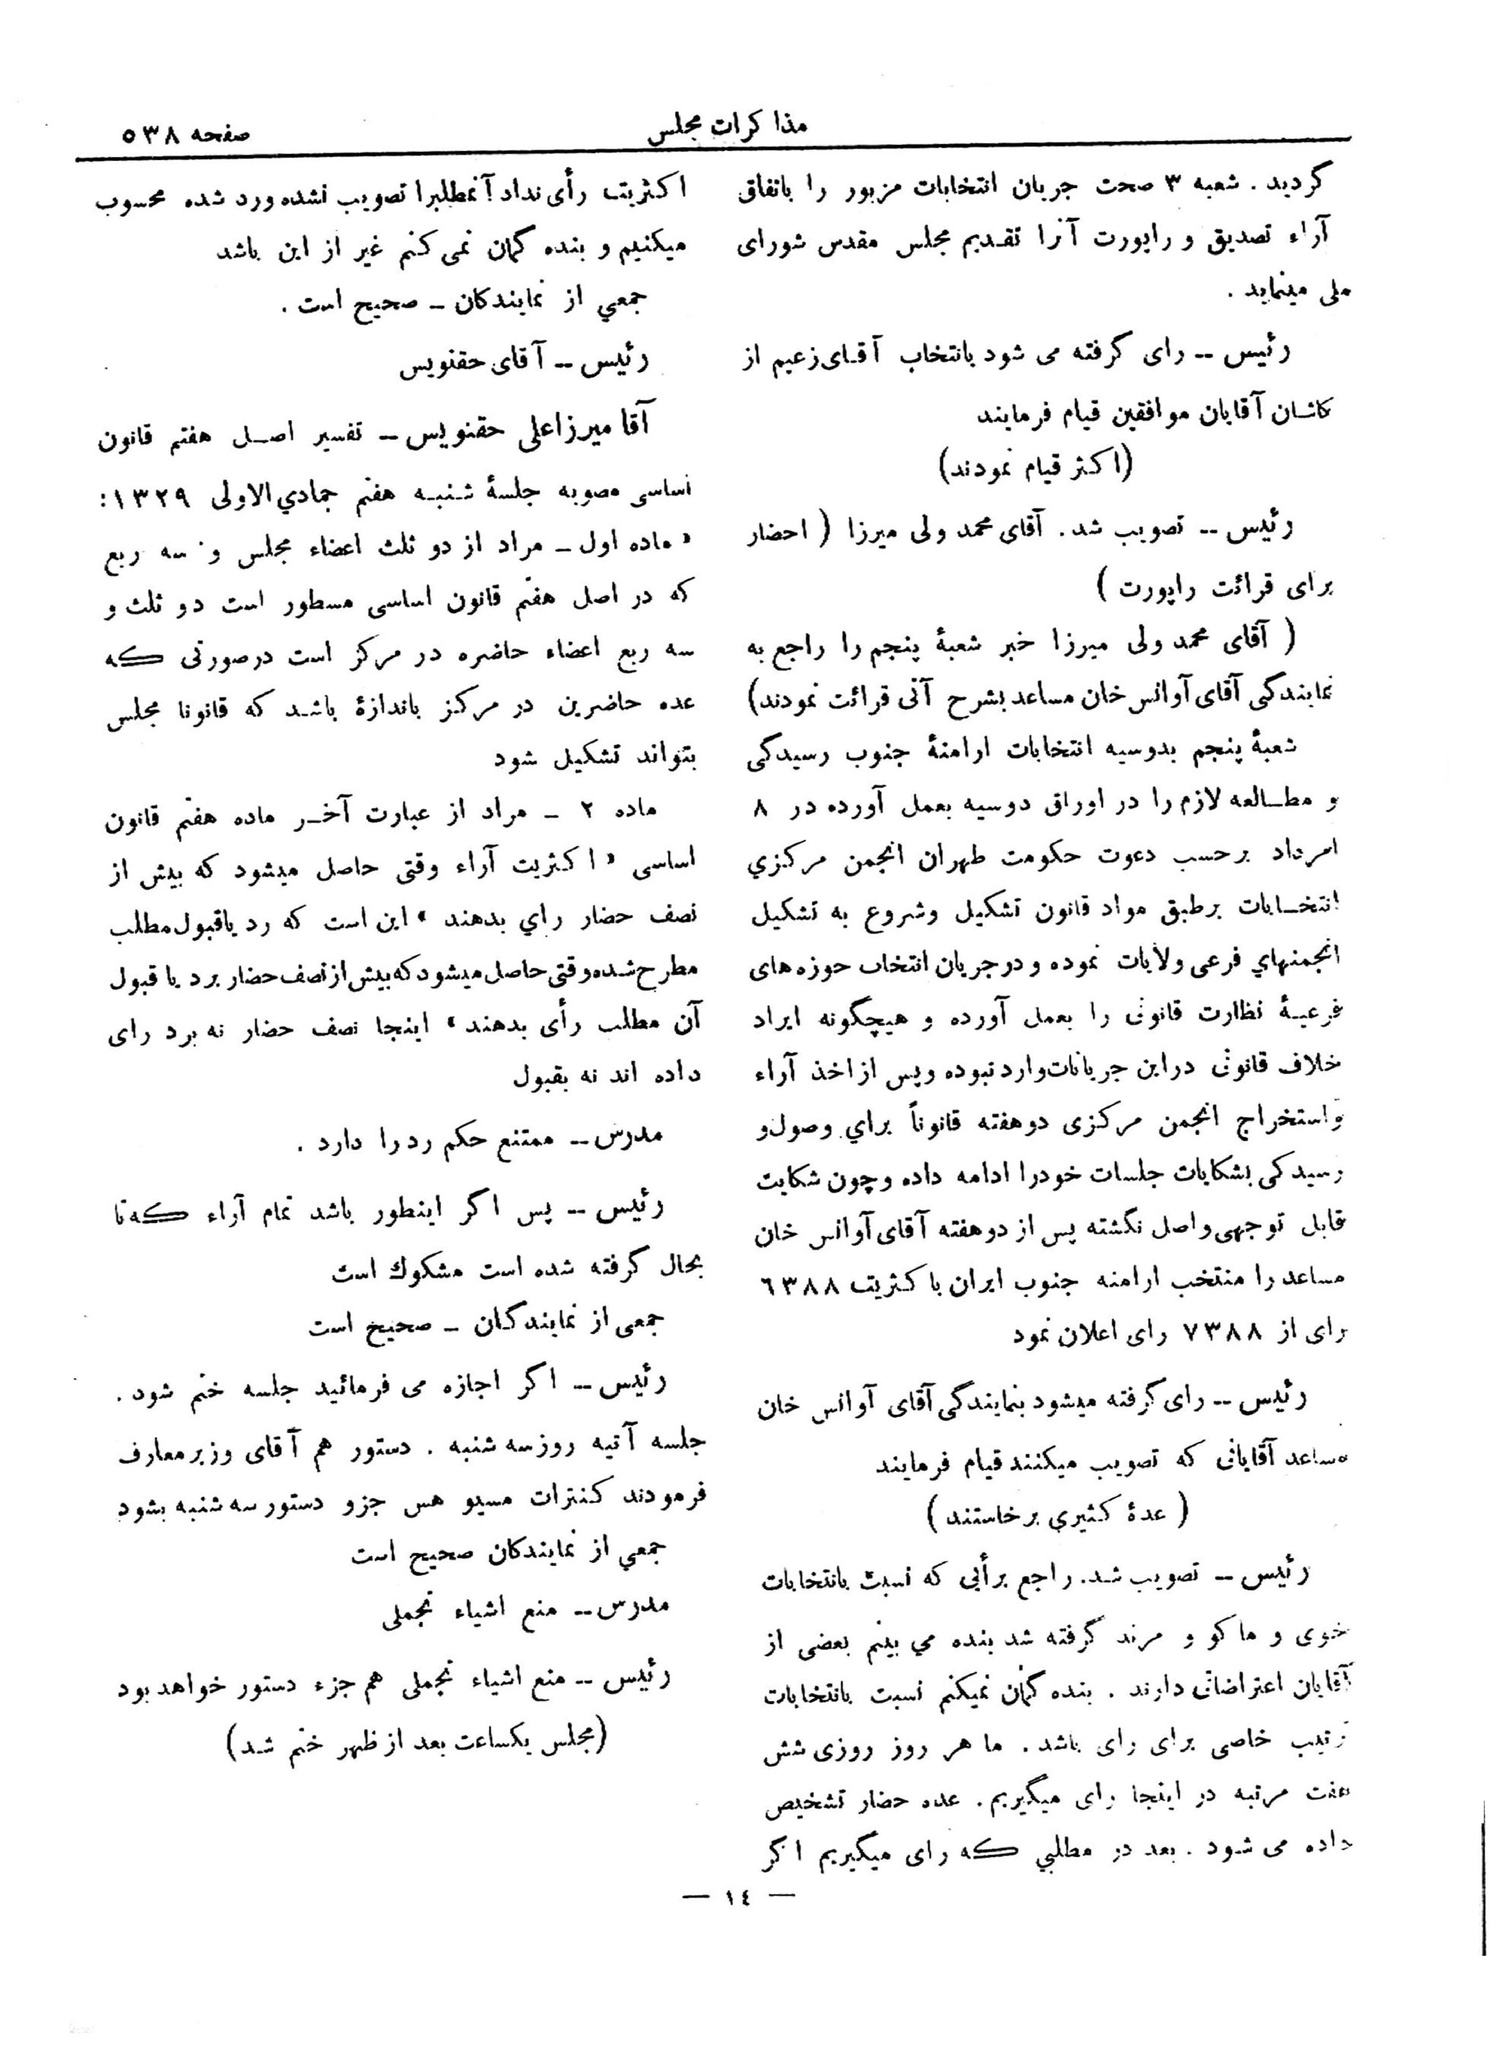 مذاکرات مجلس
صفحه ۵۳۸
گردید. شعبه ۳ صحت جریان انتخابات مزبور را باتفاق
آراء تصدیق و راپورت آنرا تقدیم مجلس مقدس شورای
ملی مینماید.
رئیس -- رای گرفته می شود بانتخاب آقای زعیم از
کاشان آقایان موافقین قیام فرمایند
(اکثر قیام نمودند)
رئیس -- تصویب شد. آقای محمد ولی میرزا ( احضار
برای قرائت راپورت )
( آقای محمد ولی میرزا خبر شعبهٔ پنجم را راجع به
نمایندگی آقای آوانس خان مساعد بشرح آتی قرائت نمودند)
شعبهٔ پنجم بدوسیه انتخابات ارامنهٔ جنوب رسیدگی
و مطالعه لازم را در اوراق دوسیه بعمل آورده در ۸
امرداد برحسب دعوت حکومت طهران انجمن مرکزي
انتخابات برطبق مواد قانون تشکیل وشروع به تشکیل
انجمنهاي فرعی ولایات نموده و درجریان انتخاب حوزه های
فرعیهٔ نظارت قانونی را بعمل آورده و هیچگونه ایراد
خلاف قانونی دراین جریانات وارد نبوده وپس از اخذ آراء
واستخراج انجمن مرکزی دوهفته قانوناً براي وصول و
رسیدگی بشکایات جلسات خودرا ادامه داده وچون شکایت
قابل توجهی واصل نگشته پس از دوهفته آقای آوانس خان
مساعد را منتخب ارامنه جنوب ایران با کثریت ٦٣٨٨
رای از ٧٣٨٨ رای اعلان نمود
رئیس -- رای گرفته میشود بنمایندگی آقای آوانس خان
مساعد آقایانی که تصویب میکنند قیام فرمایند
( عدهٔ کثیری برخاستند )
رئیس -- تصویب شد. راجع برأیی که نسبت بانتخابات
خوی و ماکو و مرند گرفته شد بنده مي بینم بعضی از
آقایان اعتراضاتی دارند. بنده گمان نمیکنم نسبت بانتخابات
ترتیب خاصی برای رای باشد. ما هر روز روزی شش
هفت مرتبه در اینجا رای میگیریم. عده حضار تشخیص
داده می شود. بعد در مطلبي که رای میگیریم اگر
اکثریت رأی نداد آنمطلبرا تصویب نشده ورد شده محسوب
میکنیم و بنده گمان نمی کنم غیر از این باشد
جمعي از نمایندگان ـ صحیح است.
رئیس -- آقای حقنویس
آقا میرزاعلی حقنویس ـ تفسیر اصل هفتم قانون
اساسی مصوبه جلسهٔ شنبه هفتم جمادي الاولی ۱۳۲۹ :
« ماده اول ـ مراد از دو ثلث اعضاء مجلس و سه ربع
که در اصل هفتم قانون اساسی مسطور است دو ثلث و
سه ربع اعضاء حاضره در مرکز است درصورتی که
عده حاضرین در مرکز باندازهٔ باشد که قانونا مجلس
بتواند تشکیل شود
ماده ۲ ـ مراد از عبارت آخر ماده هفتم قانون
اساسی « اکثریت آراء وقتی حاصل میشود که بیش از
نصف حضار راي بدهند » این است که رد یاقبول مطلب
مطرح شده وقتی حاصل میشود که بیش از نصف حضار برد یا قبول
آن مطلب رأی بدهند » اینجا نصف حضار نه برد رای
داده اند نه بقبول
مدرس -- ممتنع حکم رد را دارد.
رئیس -- پس اگر اینطور باشد تمام آراء که تا
بحال گرفته شده است مشکوك است
جمعی از نمایندگان ـ صحیح است
رئیس -- اگر اجازه می فرمائید جلسه ختم شود.
جلسه آتیه روز سه شنبه. دستور هم آقای وزیر معارف
فرمودند کنترات مسیو هس جزو دستور سه شنبه بشود
جمعي از نمایندگان صحیح است
مدرس -- منع اشیاء تجملی
رئیس -- منع اشیاء تجملی هم جزء دستور خواهد بود
(مجلس یکساعت بعد از ظهر ختم شد)
— ١٤ —